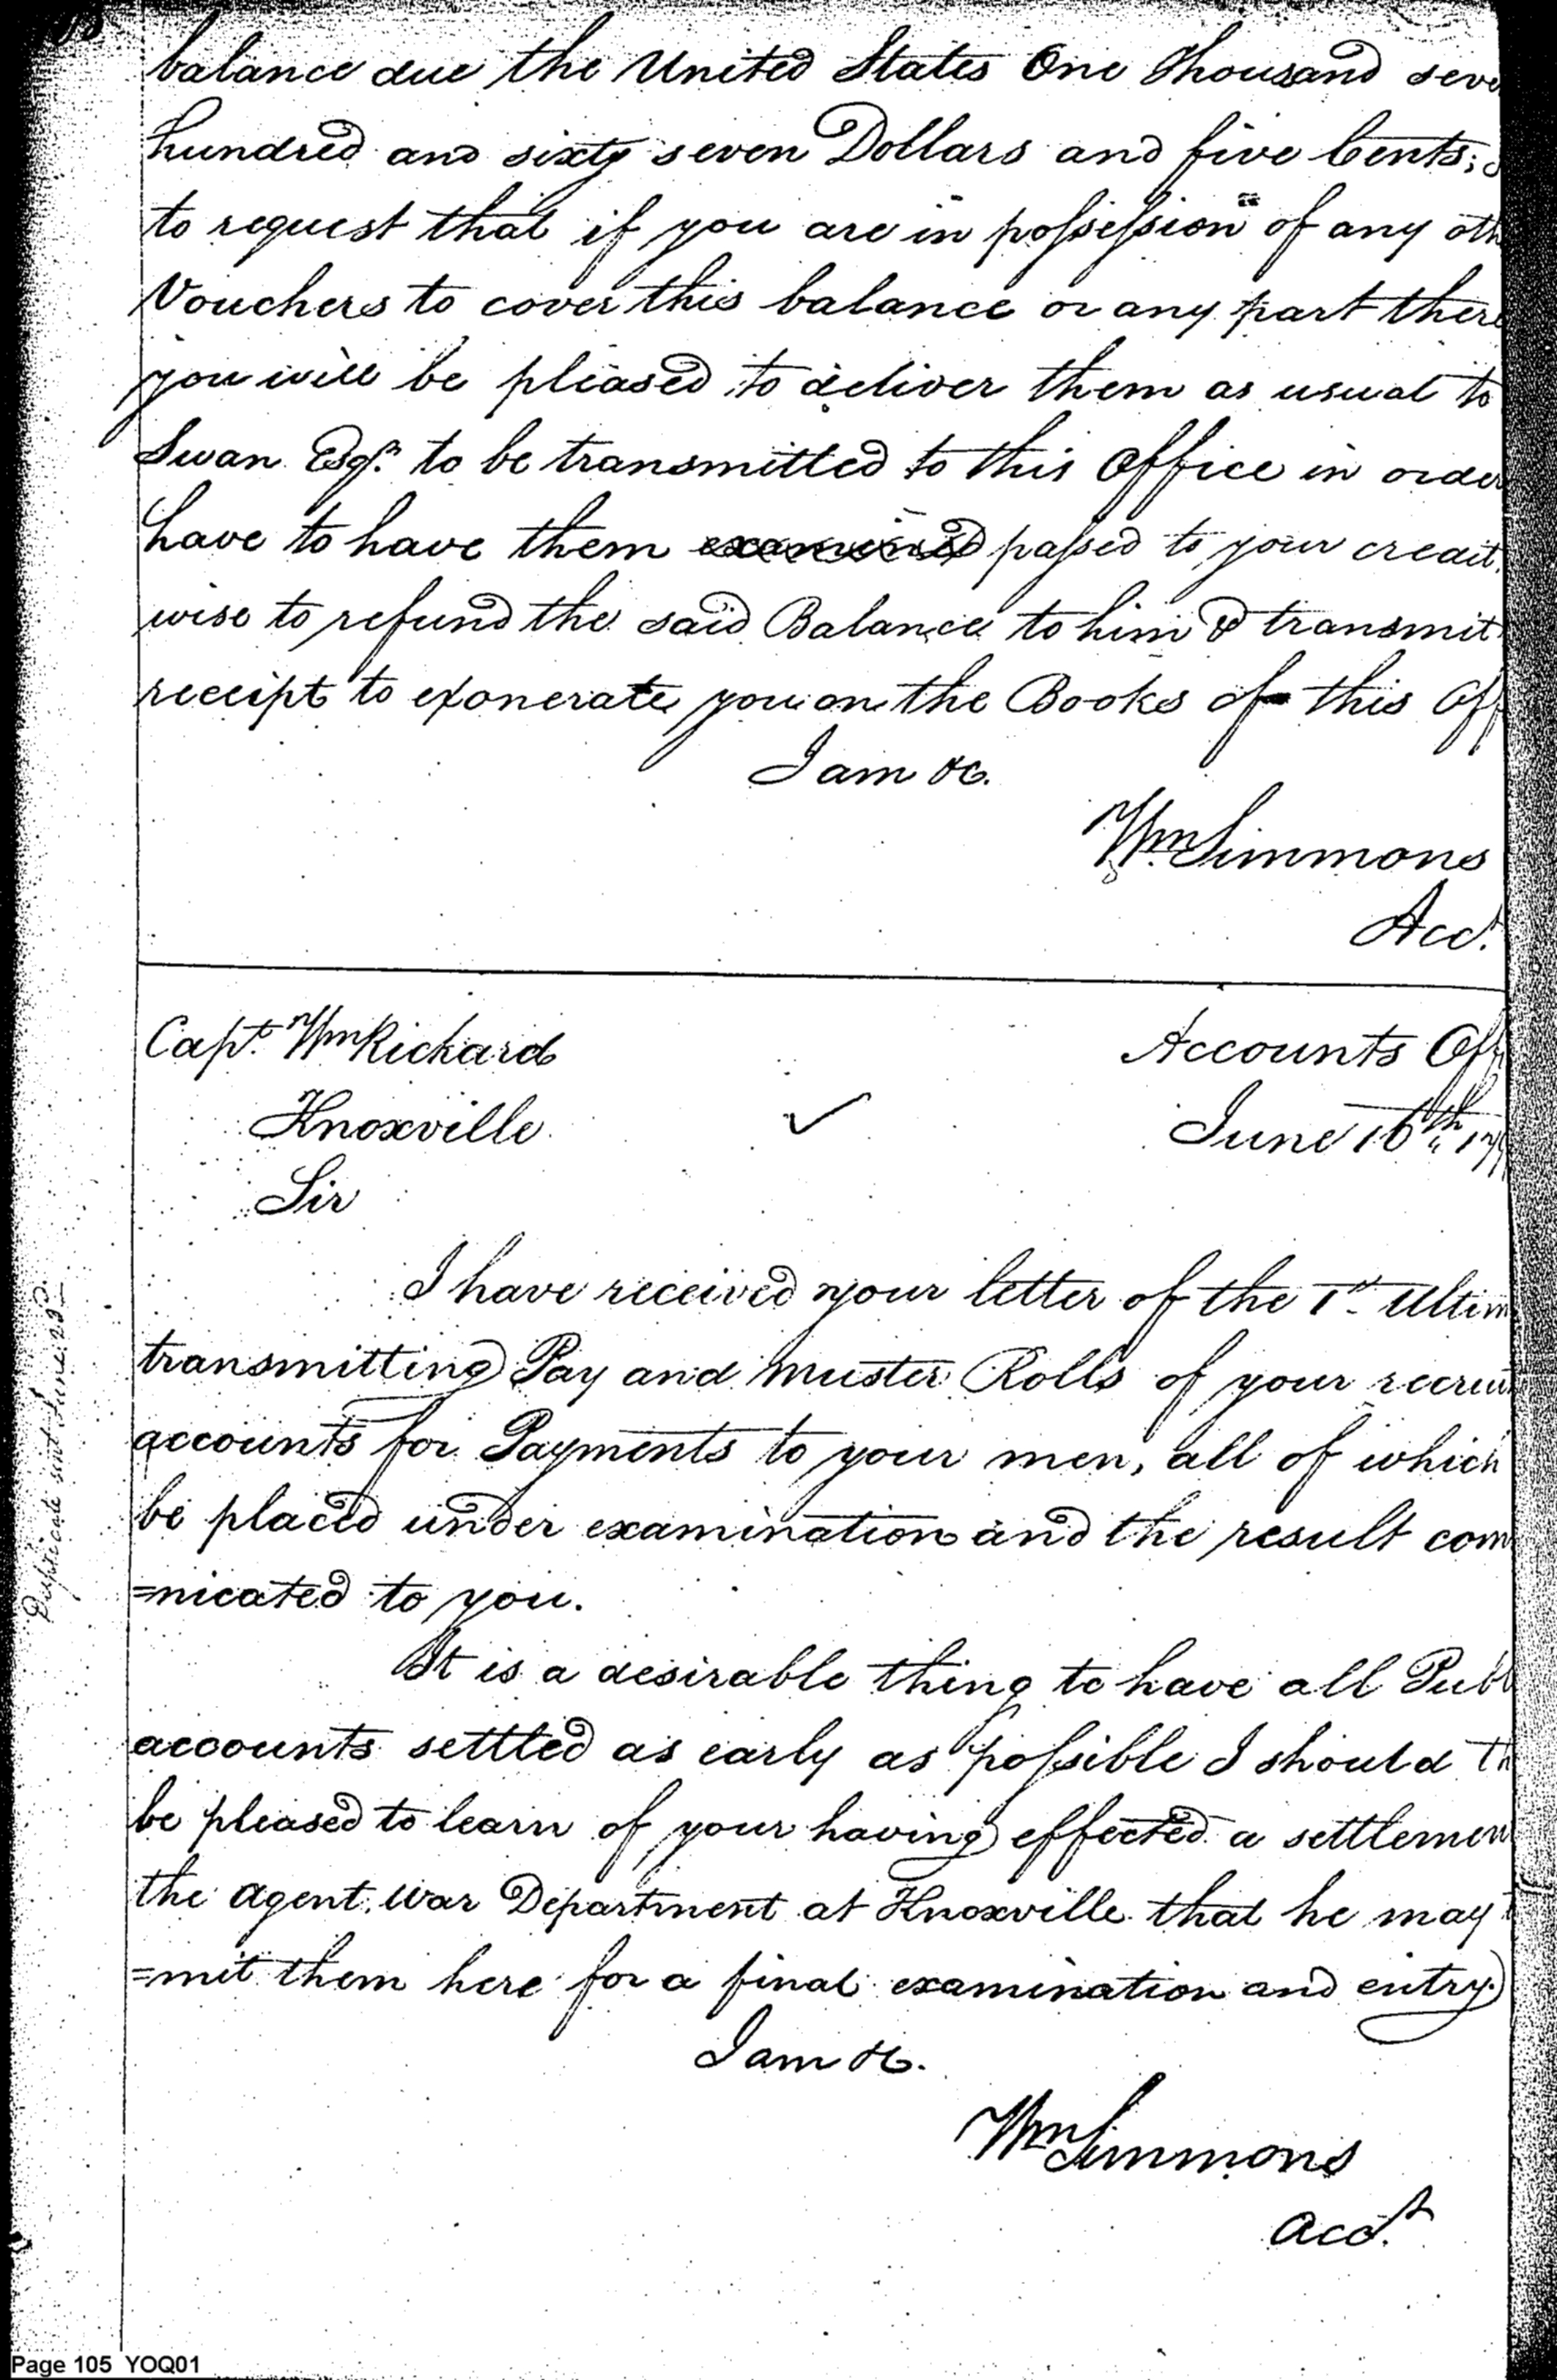 balance due the United States One Thousand seve
hundred and sixty seven Dollars and five Cents;
to request that if you are in possession of any oth
Vouchers to cover this balance or any part there
you will be pleased to deliver them as usual to
Swan Esqr. to be transmitted to this Office in order
have to have them examined passed to your credit.
wise to refund the said Balance to him & transmit
receipt to exonerate you on the Books of this Off
I am &c.
Wm Simmons
Acct.
Capt. Wm Rickard
Accounts Off
Knoxville
June 16th 179
Sir
I have received your letter of the 1st Ultim
transmitting Pay and Muster Rolls of your recruit
accounts for Payments to your men, all of which
be placed under examination and the result com
=nicated to you.
It is a desirable thing to have all Publ
accounts settled as early as possible I should th
be pleased to learn of your having effected a settlemen
the agent War Department at Knoxville that he may t
=mit them here for a final examination and entry.
I am &c.
Wm Simmons
Acct.
Duplicate sent June 23d
Page 105 YOQ01